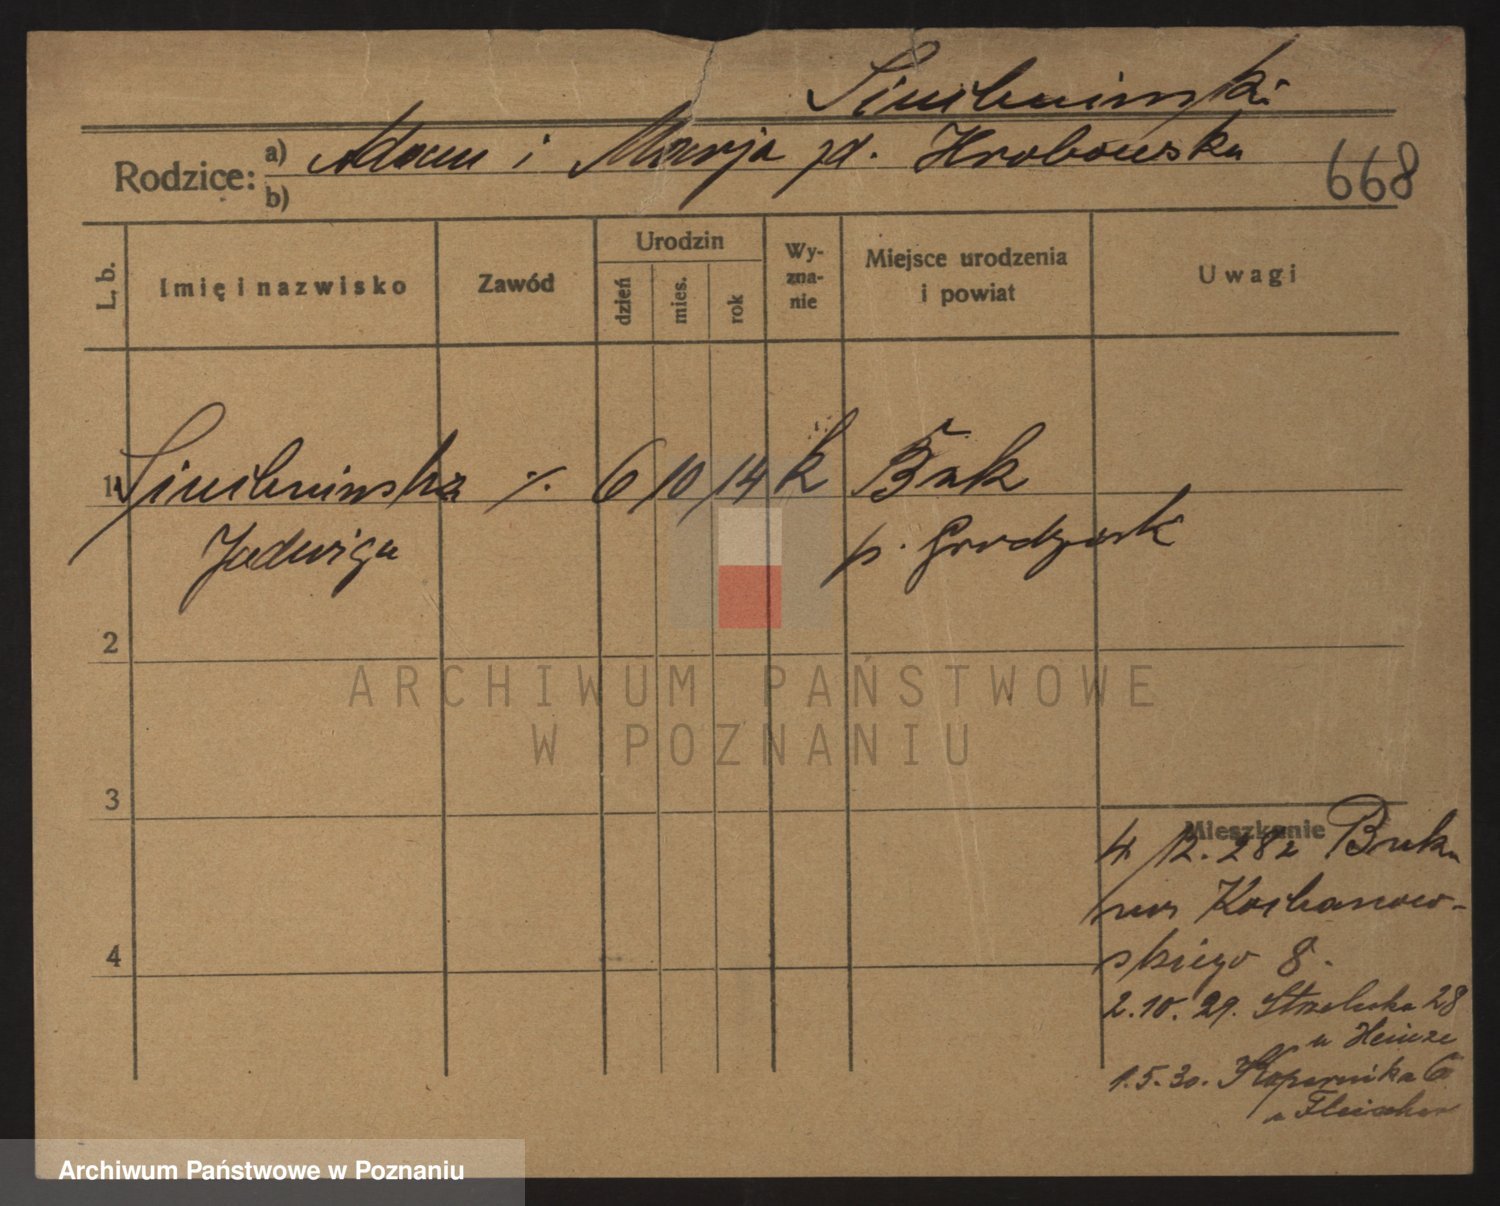 668
Rodzice: a) Adam i Marja zd. Hrobowska
b)
L. b.
Imię i nazwisko
Zawód
Urodzin
dzień
mies.
rok
Wy-
zna-
nie
Miejsce urodzenia
i powiat
Uwagi
1 ·/. 6 10 14 k Buk
Jadwiga p. Grodzisk
2
3
4
Mieszkanie
4/12. 28 z Buku
Kochanow-
skiego 8.
2.10.29. Strzelecka 28
u Heinze
1.5.30. Kopernika 6
u Fleischer
ARCHIWUM PAŃSTWOWE
W POZNANIU
Archiwum Państwowe w Poznaniu